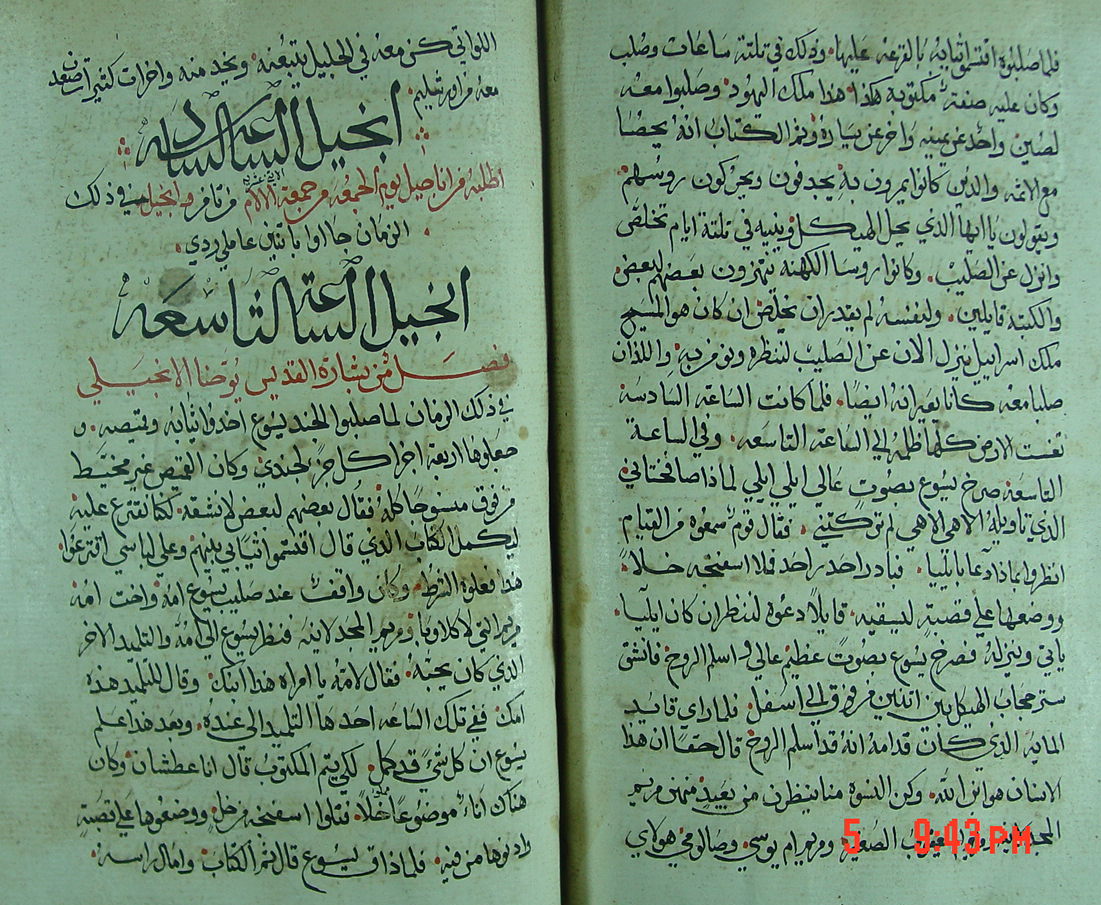 فلما صلبوه اقتسموا ثيابه بالقرعه عليها. وذلك في تلتة ساعات وصلب
وكان عليه صفته مكتوبة هكذا هذا ملك اليهود. وصلبوا معه
لصين واحد عن يمينه واخر عن يساره وتم الكتاب انه يحصا
مع الاتمه والذين كانوا يمرون به يجدفون ويحركون روسهم
ويقولون يا ايها الذي يحل الهيكل ويبنيه في تلتة ايام تخلص
وانزل عن الصليب. وكانوا روسا الكهنه يتهزون بعضهم لبعض
والكتبه قايلين. ولنفسه لم يقدر ان يخلص ان كان هو المسيح
ملك اسراييل ينزل الان عن الصليب لننظره ونومن به. واللذان
صلبا معه كانا يعيرانه ايضا. فلما كانت الساعة السادسة
تغشت الارض كلها ظلمه الي الساعة التاسعه. وفي الساعة
التاسعه صرخ يسوع بصوت عالي ايلي ايلي لماذا صافختاني
الذي تاويله الاهي الاهي لم تركتني. فقال قوم سمعوه من القيام
انظروا بماذا دعا بايليا. فبادر احد فملا اسفنجه خلا.
ووضعها علي قصبة ليسقيه. قايلا دعوه لننظر ان كان ايليا
ياتي وينزله فصرخ يسوع بصوت عظيم عالي واسلم الروح فانشق
ستر حجاب الهيكل بين اثنين من فوق الي اسفل. فلما راي قايد
المايه الذي كان قدامه انه قد اسلم الروح قال حقا ان هذا
الانسان هو ابن الله. وكن النسوه منا ينظرن من بعيد منهن مريم
المجدليه ومريم ام يعقوب الصغير ومريم ام يوسي وصالومي هولاي
5 9:43PM
اللواتي كن معه في الجليل يتبعنه. ويخدمنه واخرات كثيرات صعدن
معه من اورشليم.
انجيل الساعة السادسه
اطلبه من اناجيل يوم الجمعه من جمعة الالام من تامر والانجيل في ذلك
الزمان جااوا باثنين عاملي ردي.
انجيل الساعة التاسعه
فصل من بشارة القديس يوحنا الانجيلي
في ذلك الزمان لما صلبوا الجند يسوع اخدوا ثيابه وقميصه. و
جعلوها اربعة اجزا كل جز لجندي وكان القميص غير مخيط
من فوق منسوجا كله فقال بعضهم لبعض لا نشقه. لكنا نقترع عليه
ليكمل الكتاب الذي قال اقتسموا ثيابي بينهم وعلي لباسي اقترعوا
هذا فعلوه الشرط. وكان واقفات عند صليب يسوع امه واخت امه
مريم التي لاكلاوبا ومريم المجدلانيه فنظر يسوع الي امه والتلميد الاخر
الذي كان يحبه. فقال لامه يا امراه هذا ابنك. وقال للتلميد هذه
امك. ففي تلك الساعه اخدها التلميد الي عنده. وبعد هذا علم
يسوع ان كل شي قد كمل. لكي يتم المكتوب قال انا عطشان وكان
هناك اناء موضوعا خلا. فملوا اسفنجه من خل. ووضعوها علي قصبة
وادنوها من فيه. فلما ذاق يسوع قال تم الكتاب وامال راسه.